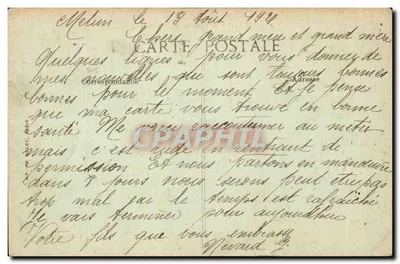 Melun le 12 Août 192
Chers grand mere et grand père
CARTE POSTALE
Quelques lignes pour vous donner de
Correspondance Adresse
mes nouvelles qui sont toujours bonnes
bonnes pour le moment Et je pense
que ma carte vous trouve en bonne
santé Me au metier
mais c'est rude en rentrant de
permission Et nous partons en manœuvre
dans 8 jours nous serons peut etre pas
trop mal par le temps c'est rafraichi
Je vais terminer pour aujourdhui
Votre fils qui vous embrasse